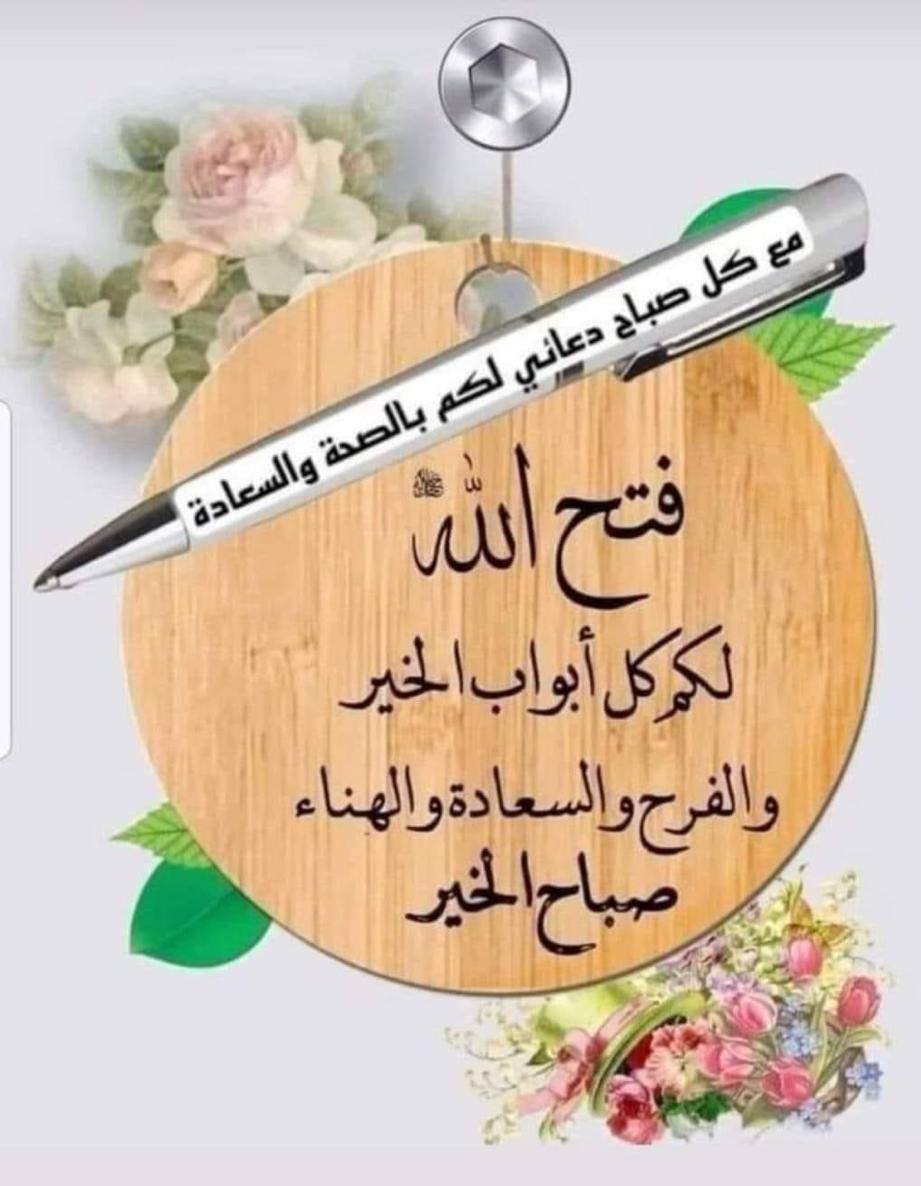 مع كل صباح دعائي لكم بالصحة والسعادة
فتح الله ﷻ
لكم كل أبواب الخير
والفرح والسعادة والهناء
صباح الخير